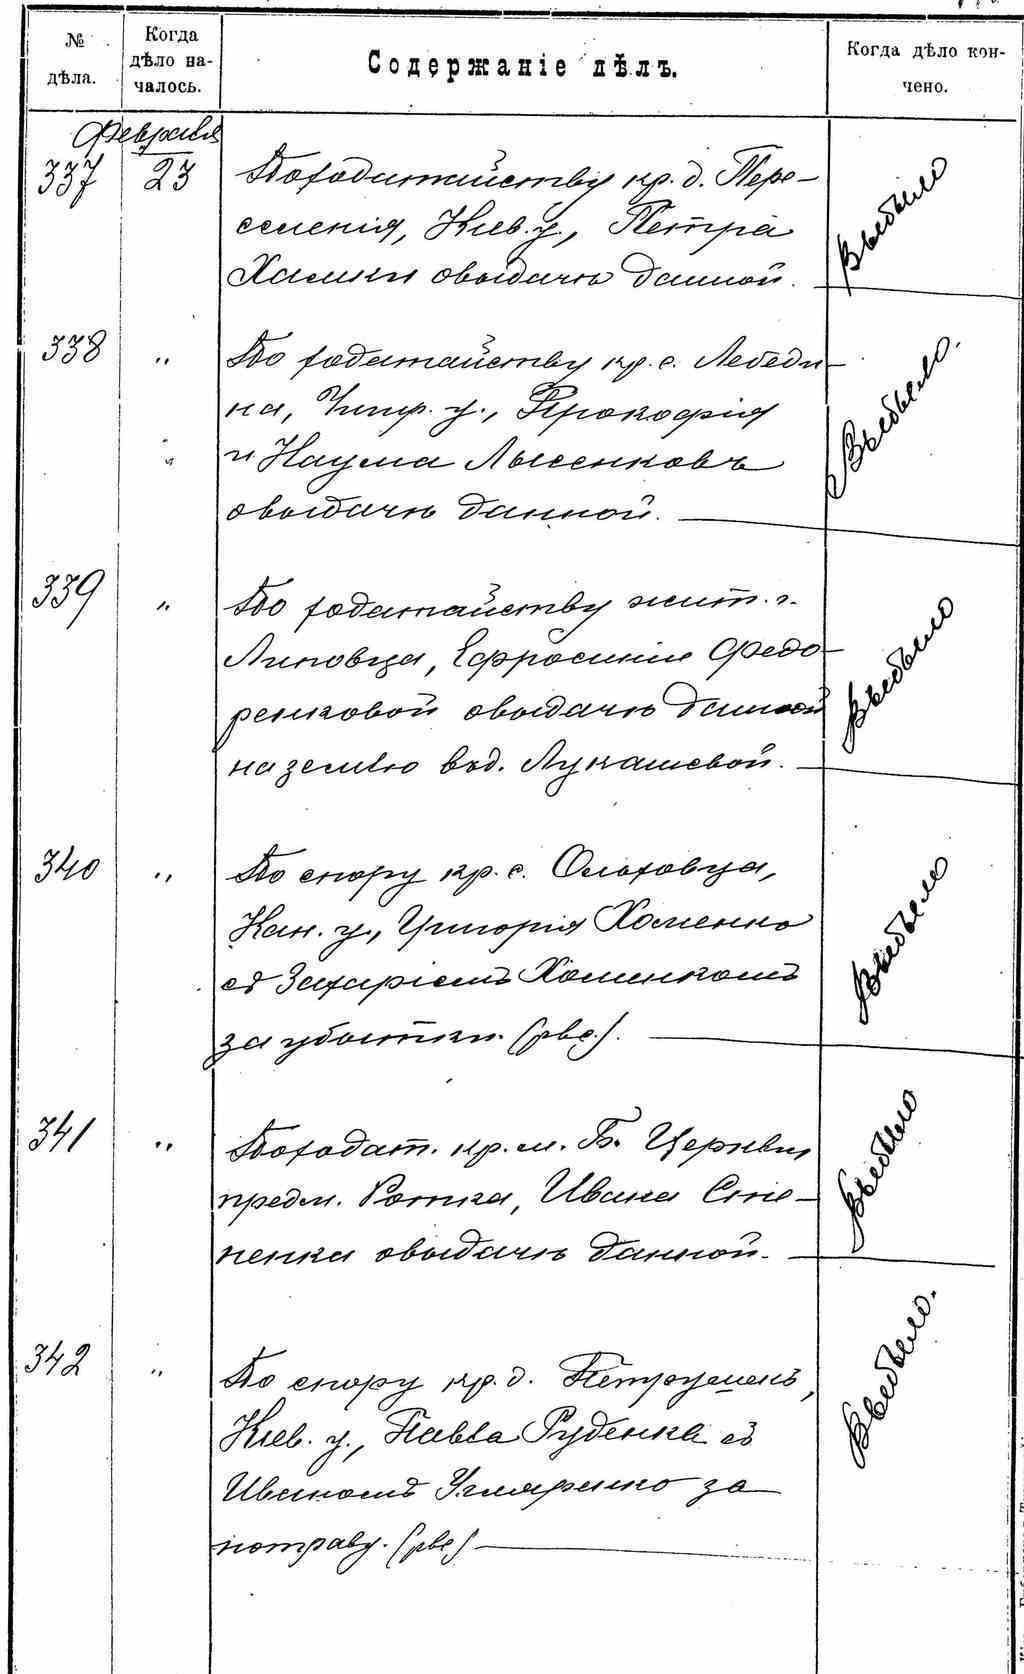 № дѣла.
Когда дѣло началось.
Содержаніе дѣлъ.
Когда дѣло кончено.
Февраля
337 23 По ходатайству кр. д. Пере-
селенія, Кіев. у., Петра
о выдачѣ данной.
Выбыло
338 " По ходатайству кр. с. Лебеди-
на, Чигир. у., Прокофія
и Наума Лысенковъ
о выдачѣ данной.
Выбыло.
339 " По ходатайству жит. г.
Липовца, Ефросиніи Федо-
ренковой о выдачѣ данной
на землю въ д. Лукашевой.
Выбыло
340 " По спору кр. с.
Кан. у., Григорія Хоменко
съ Захаріемъ Хоменкомъ
за убытки. (рвс.).
Выбыло
341 " По ходат. кр. м. Б. Церкви,
предм. Ротка, Ивана Сте-
ненка о выдачѣ данной.
Выбыло
342 " По спору кр. д. Петрушекъ,
Кіев. у., Павла Руденка съ
Иваномъ за
потраву. (рвс)
Выбыло.